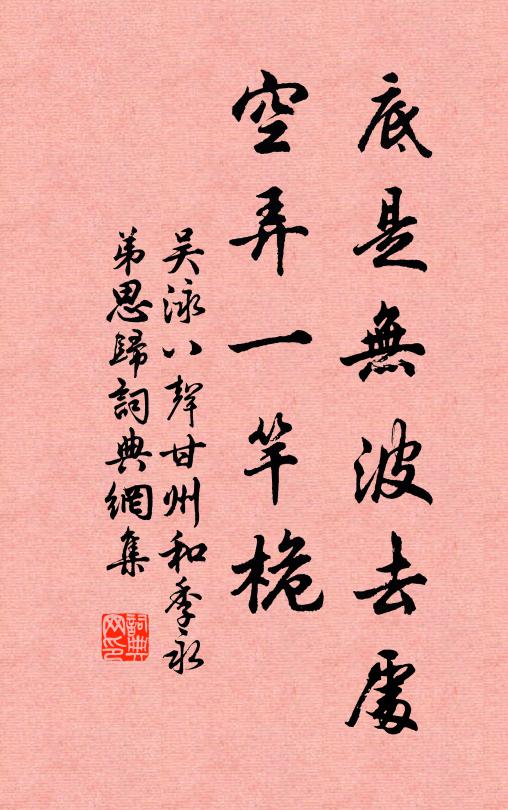 底是無波去處
空弄一竿桅
吴泳八聲甘州和季永
弟思歸詞典網集
詞典
网印